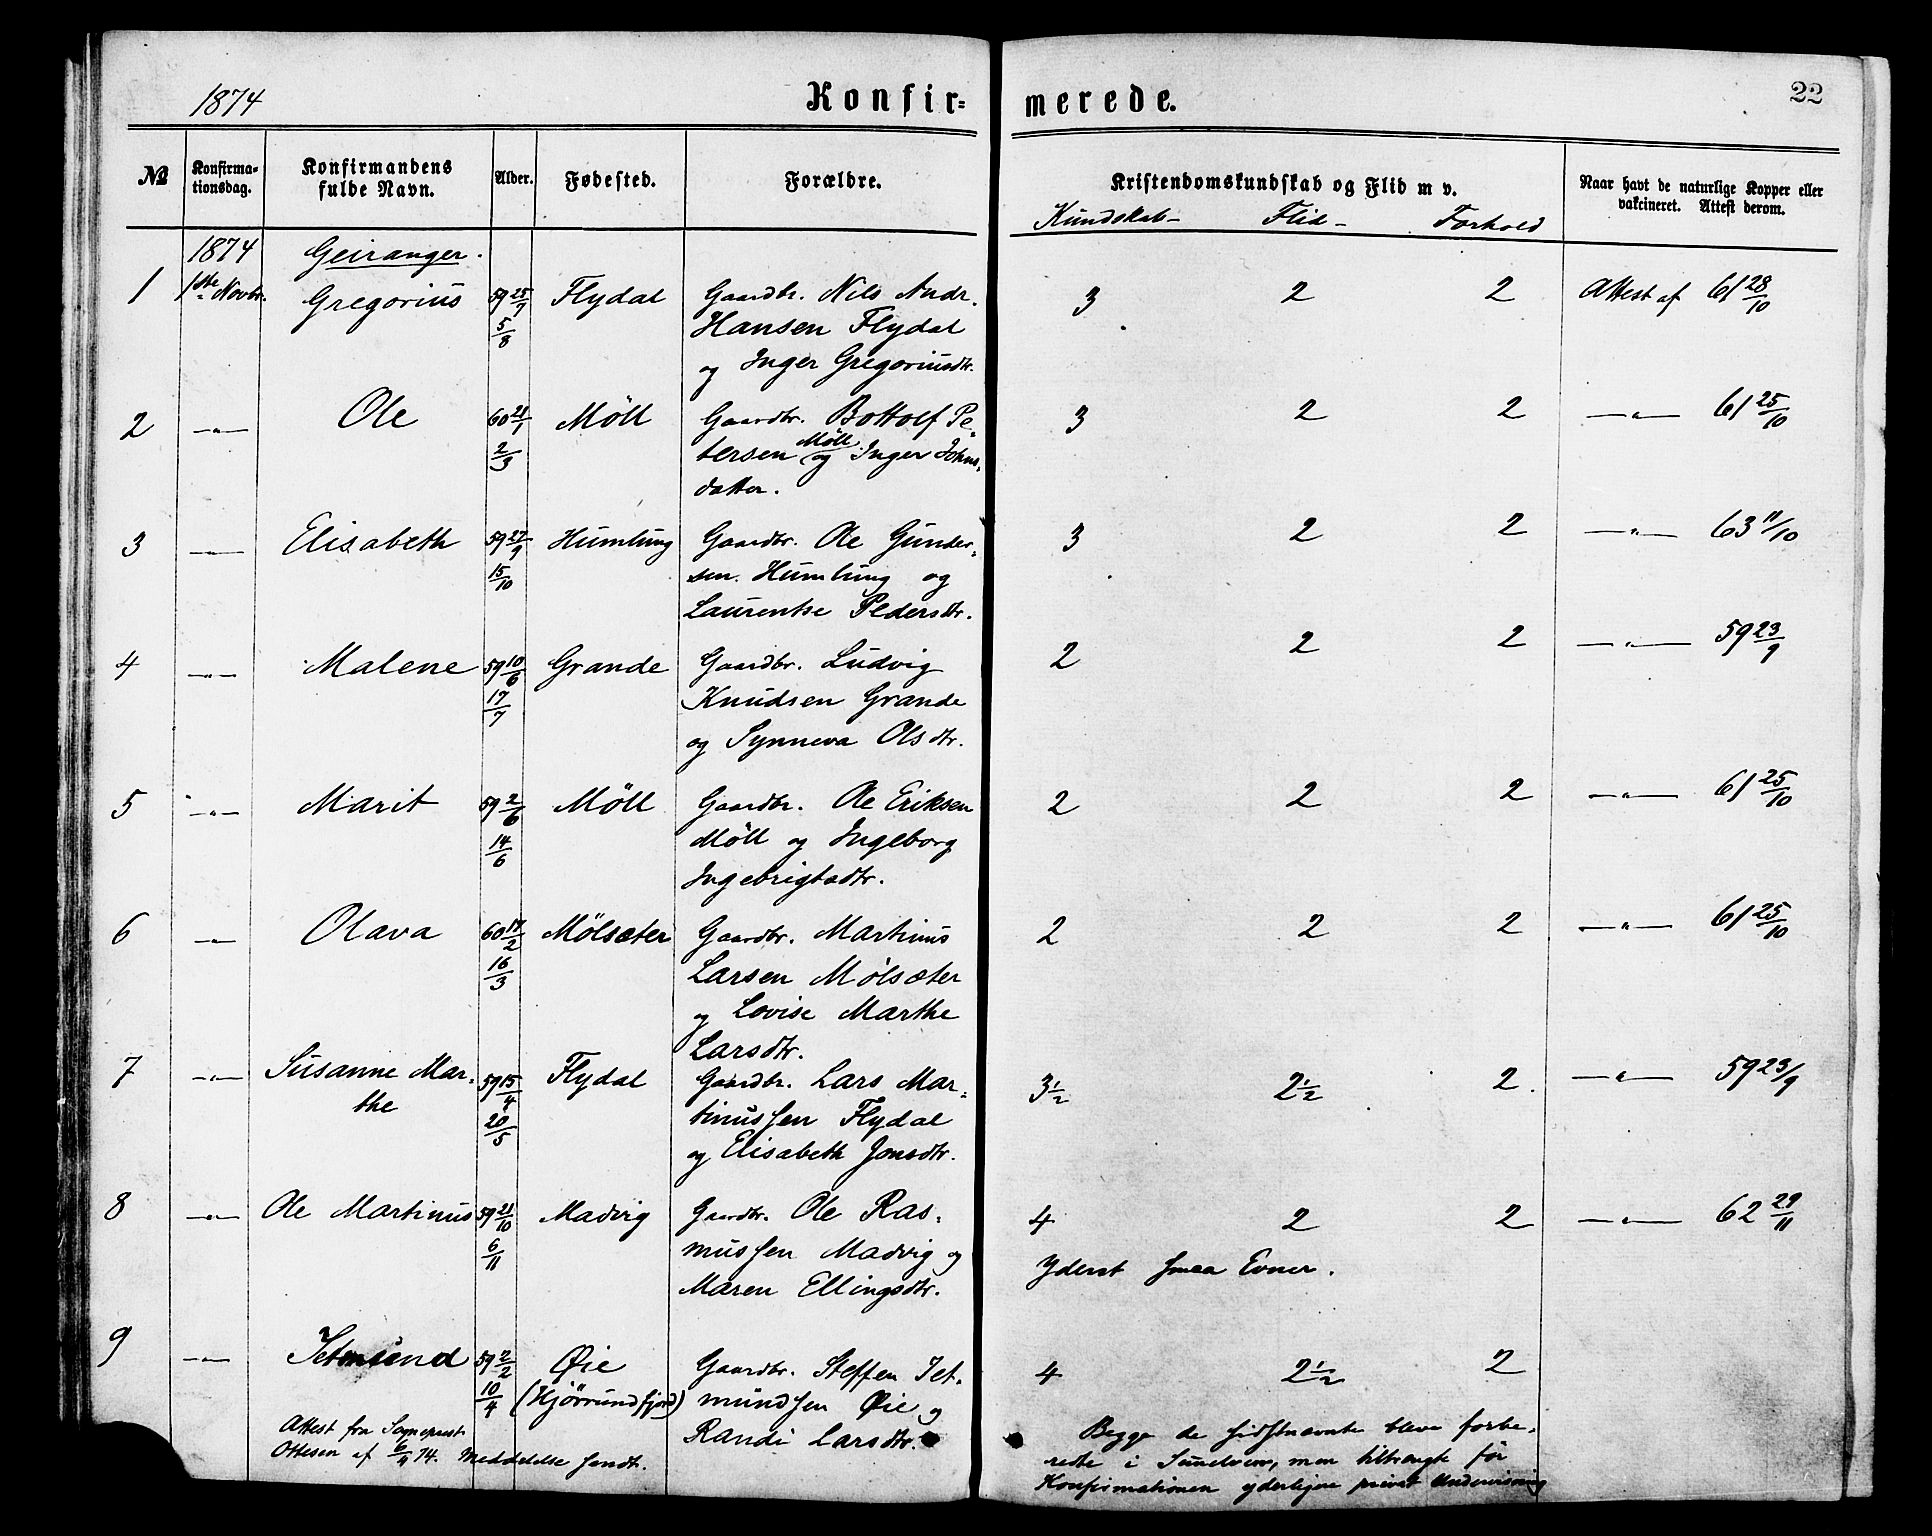 1874 Konfir= merede. 22
№ Konfirma- tionsdag. Konfirmandens fulde Navn. Alder. Fødested. Forældre. Kristendomskundskab og Flid m v. Naar havt de naturlige Kopper eller vakcineret. Attest derom.
Kundskab- Flid- Forhold
1874 Geiranger.
1 1ste Novbr. Gregorius 59 25/7 Flydal Gaardbr. Nils Andr. 3 2 2 Attest af 61 28/10
5/8 Hansen Flydal
og Inger Gregoriusdtr.
2 -"- Ole 60 21/1 Möll Gaardbr. Bottolf Pe- 3 2 2 -"- 61 25/10
2/3 tersen Möll og Inger Johns-
datter.
3 -"- Elisabeth 59 27/9 Humlung Gaardbr. Ole Gunder- 3 2 2 -"- 63 11/10
15/10 sen. Humlung og
Laurentse Pedersdtr.
4 -"- Malene 59 10/6 Grande Gaardbr. Ludvig 2 2 2 -"- 59 23/9
17/7 Knudsen Grande
og Synneva Olsdtr.
5 -"- Marit 59 2/6 Möll Gaardbr. Ole Eriksen 2 2 2 -"- 61 25/10
14/6 Möll og Ingeborg
Ingebrigtsdtr.
6 -"- Olava 60 14/2 Mölsæter Gaardbr. Martinus 2 2 2 -"- 61 25/10
16/3 Larsen Mölsæter
og Lovise Marthe
Larsdtr.
7 -"- Susanne Mar- 59 15/4 Flydal Gaardbr. Lars Mar- 3½ 2½ 2. -"- 59 23/9
the 20/5 tinussen Flydal
og Elisabeth Jonsdtr.
8 -"- Ole Martinus 59 21/10 Madvig Gaardbr. Ole Ras- 4 2 2 -"- 62 29/11
6/11 mussen Madvig og Yderst smaa Evner.
Maren Ellingsdtr.
9 -"- Jetmund 59 2/2 Øie Gaardbr. Steffen Jet- 4 2½ 2
10/4 (Hjörrundfjord) mundsen Øie og
Randi Larsdtr.
Attest fra Sognepræst
Ottesen af 6/4 74. Meddelelse sendt.
Begge de sidstnævnte bleve forbe-
redte i Sunelven, men tiltrængte för
Konfirmationen yderligere privat Undervisning